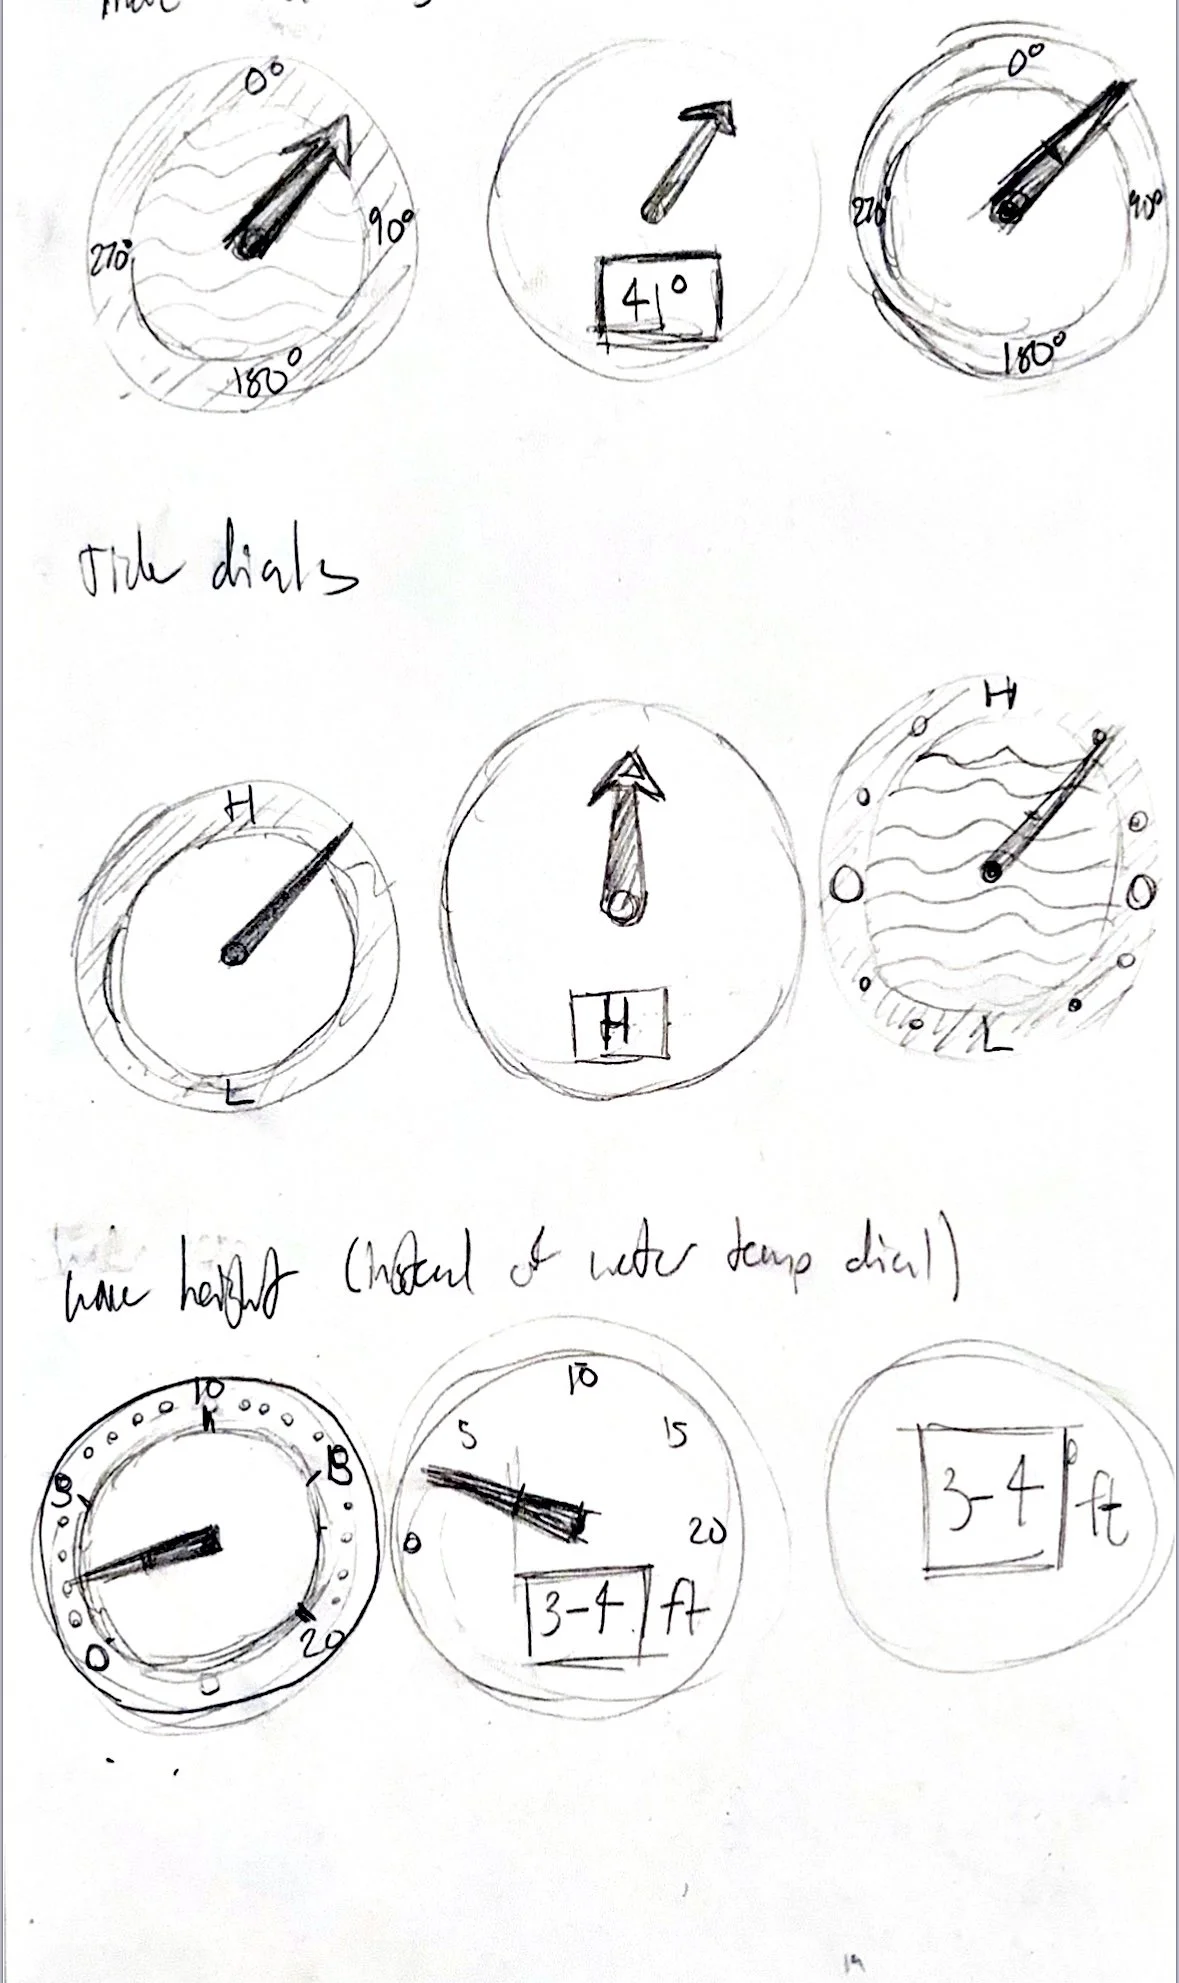 0°
270°
90°
180°
41°
0°
270°
90°
180°
Tide dials
H
L
H
H
L
wave height (instead of water temp dial)
10
5
15
0
20
10
5
15
0
20
3-4 ft
3-4 ft